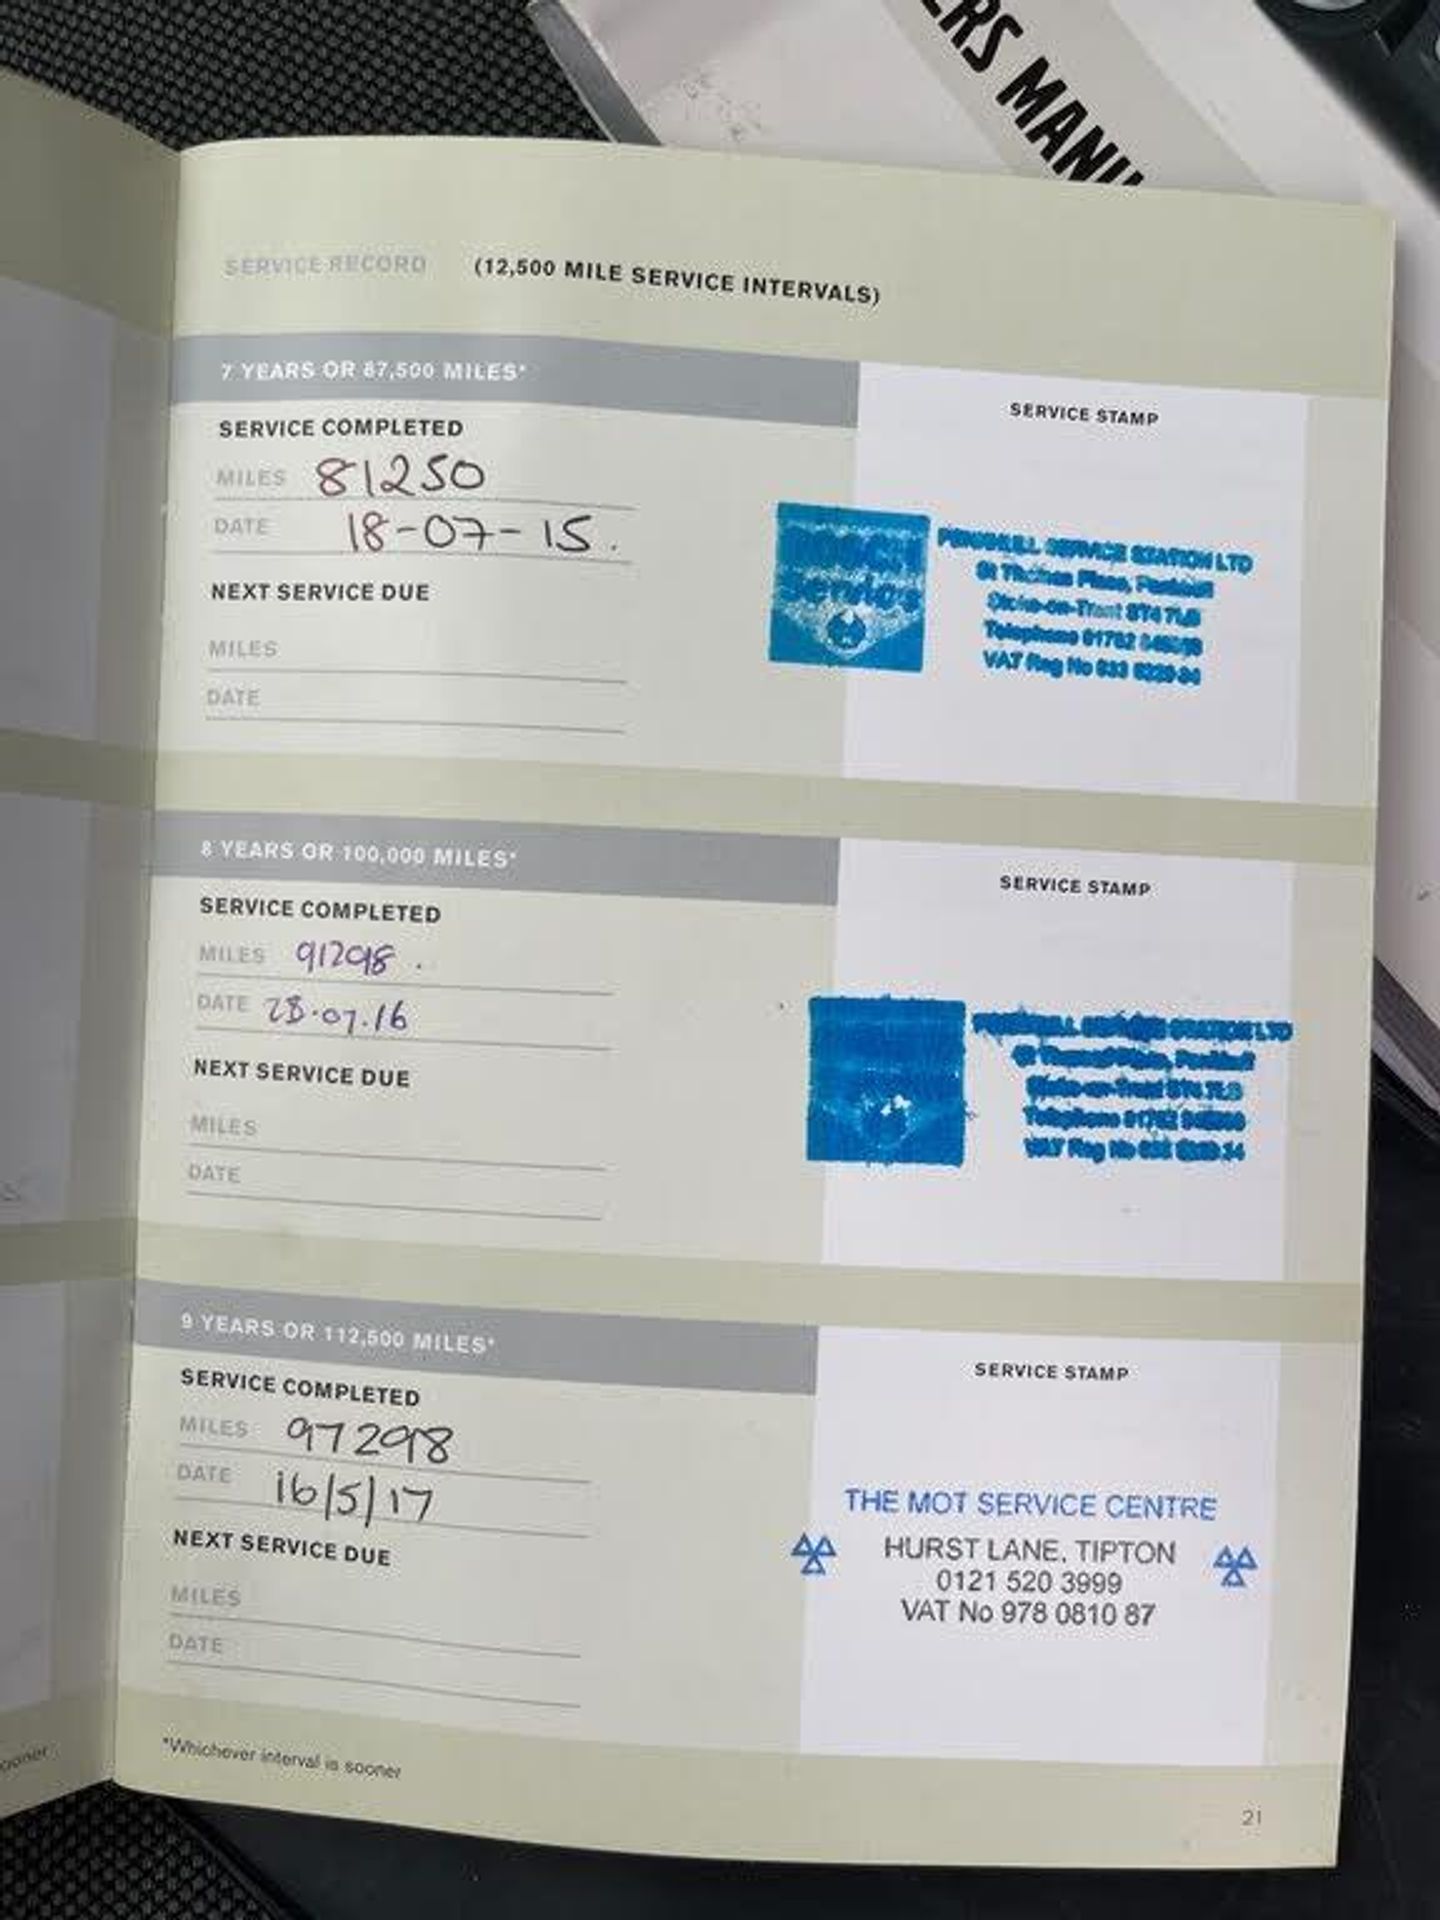 ERS MANU
SERVICE RECORD (12,500 MILE SERVICE INTERVALS)
7 YEARS OR 87,500 MILES*
SERVICE STAMP
SERVICE COMPLETED
MILES 81250
DATE 18-07-15.
NEXT SERVICE DUE
MILES
DATE
SERVICE STATION LTD
St Thomas Place, Penkhull
Stoke-on-Trent ST4 7LB
Telephone 01782
VAT Reg No
8 YEARS OR 100,000 MILES*
SERVICE STAMP
SERVICE COMPLETED
MILES 91298.
DATE 28.07.16
NEXT SERVICE DUE
MILES
DATE
SERVICE STATION LTD
St Thomas Place, Penkhull
Stoke-on-Trent ST4 7LB
Telephone 01782
VAT Reg No
9 YEARS OR 112,500 MILES*
SERVICE STAMP
SERVICE COMPLETED
MILES 97298
DATE 16/5/17
NEXT SERVICE DUE
MILES
DATE
THE MOT SERVICE CENTRE
HURST LANE, TIPTON
0121 520 3999
VAT No 978 0810 87
*Whichever interval is sooner
21